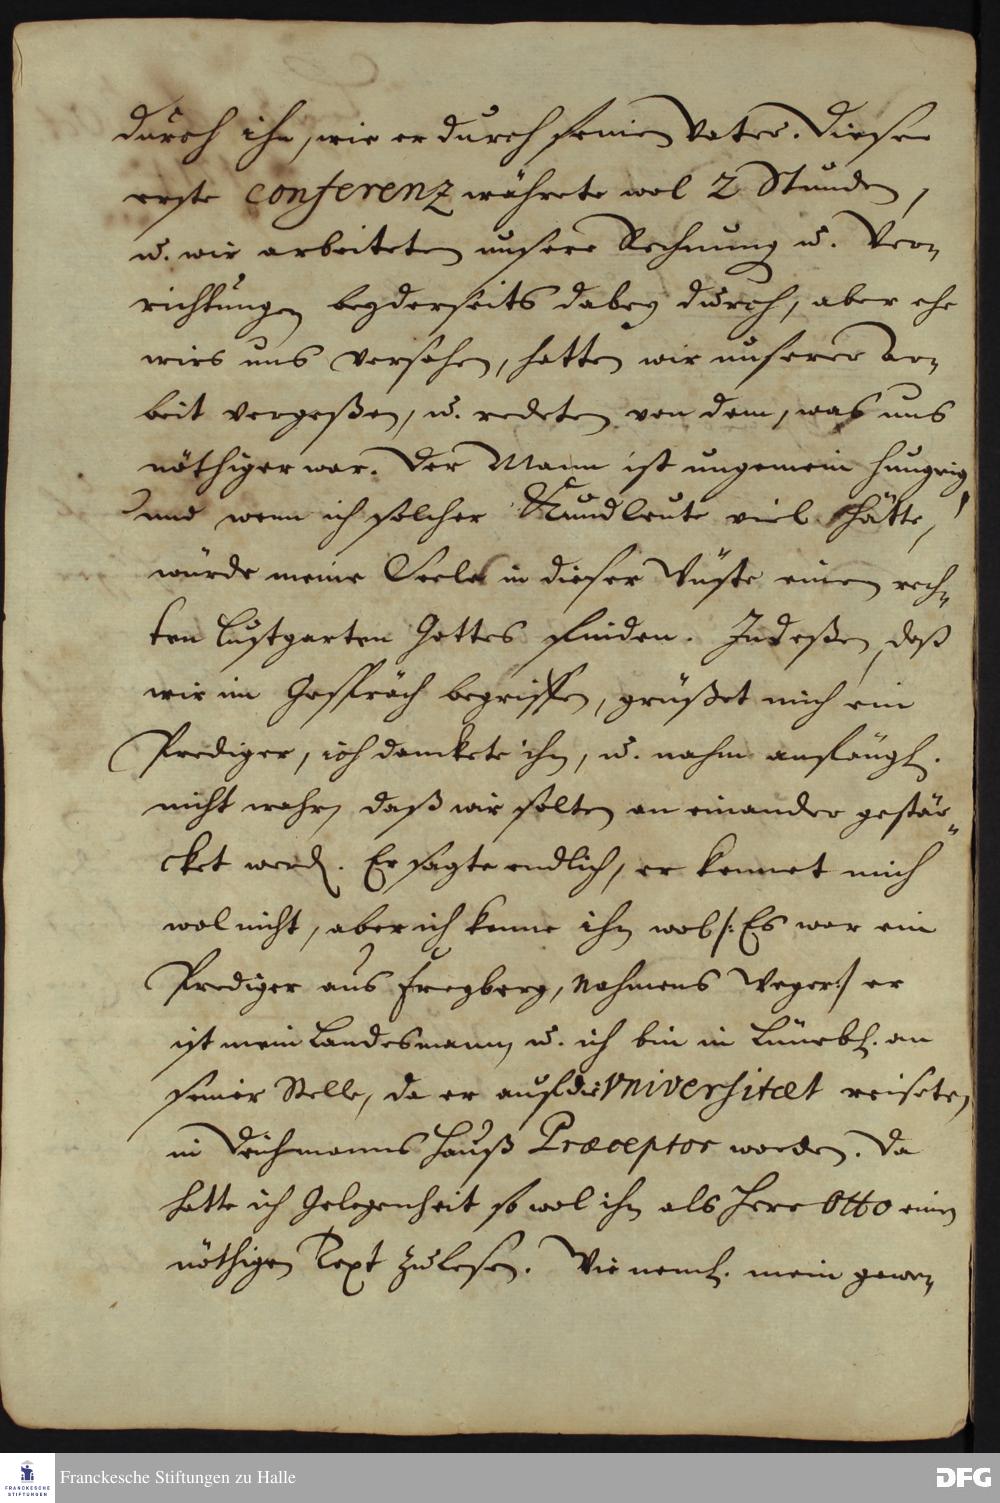 durch ihn, wie er durch seinen Vater. Diese
erste Conferenz währete wol 2 Stunden,
u. wir arbeiteten unsere Rechnung u. Ver-
richtungen beyderseits dabey durch, aber ehe
wirs uns versahen, hatten wir unserer Ar-
beit vergeßen, u. redeten von dem, was uns
nöthiger war. Der Mann ist ungemein hungrig
und wenn ich solcher Kundleute viel hätte,
würde meine Seele in dieser Wüste einen rech-
ten Lustgarten Gottes finden. Indeßen, daß
wir im Gespräch begriffen, grüßet mich ein
Prediger, ich danckete ihm, u. nahm anfängl.
nicht wahr, daß wir solten an einander gestär-
cket werd. Er sagte endlich, er kennet mich
wol nicht, aber ich kenne ihn wol /: Es war ein
Prediger aus Freyberg, Nahmens Weger :/ er
ist mein Landesmann, u. ich bin in Lüneb. an
seiner Stelle, da er auf die Universitæt reisete,
in Dichmanns Hauß Præceptor worden. Da
hatte ich Gelegenheit so wol ihm als Herr Otto einen
nöthigen Text zu lesen. Wie neml. mein gewe-
Franckesche Stiftungen zu Halle
FRANCKESCHE
STIFTUNGEN
DFG